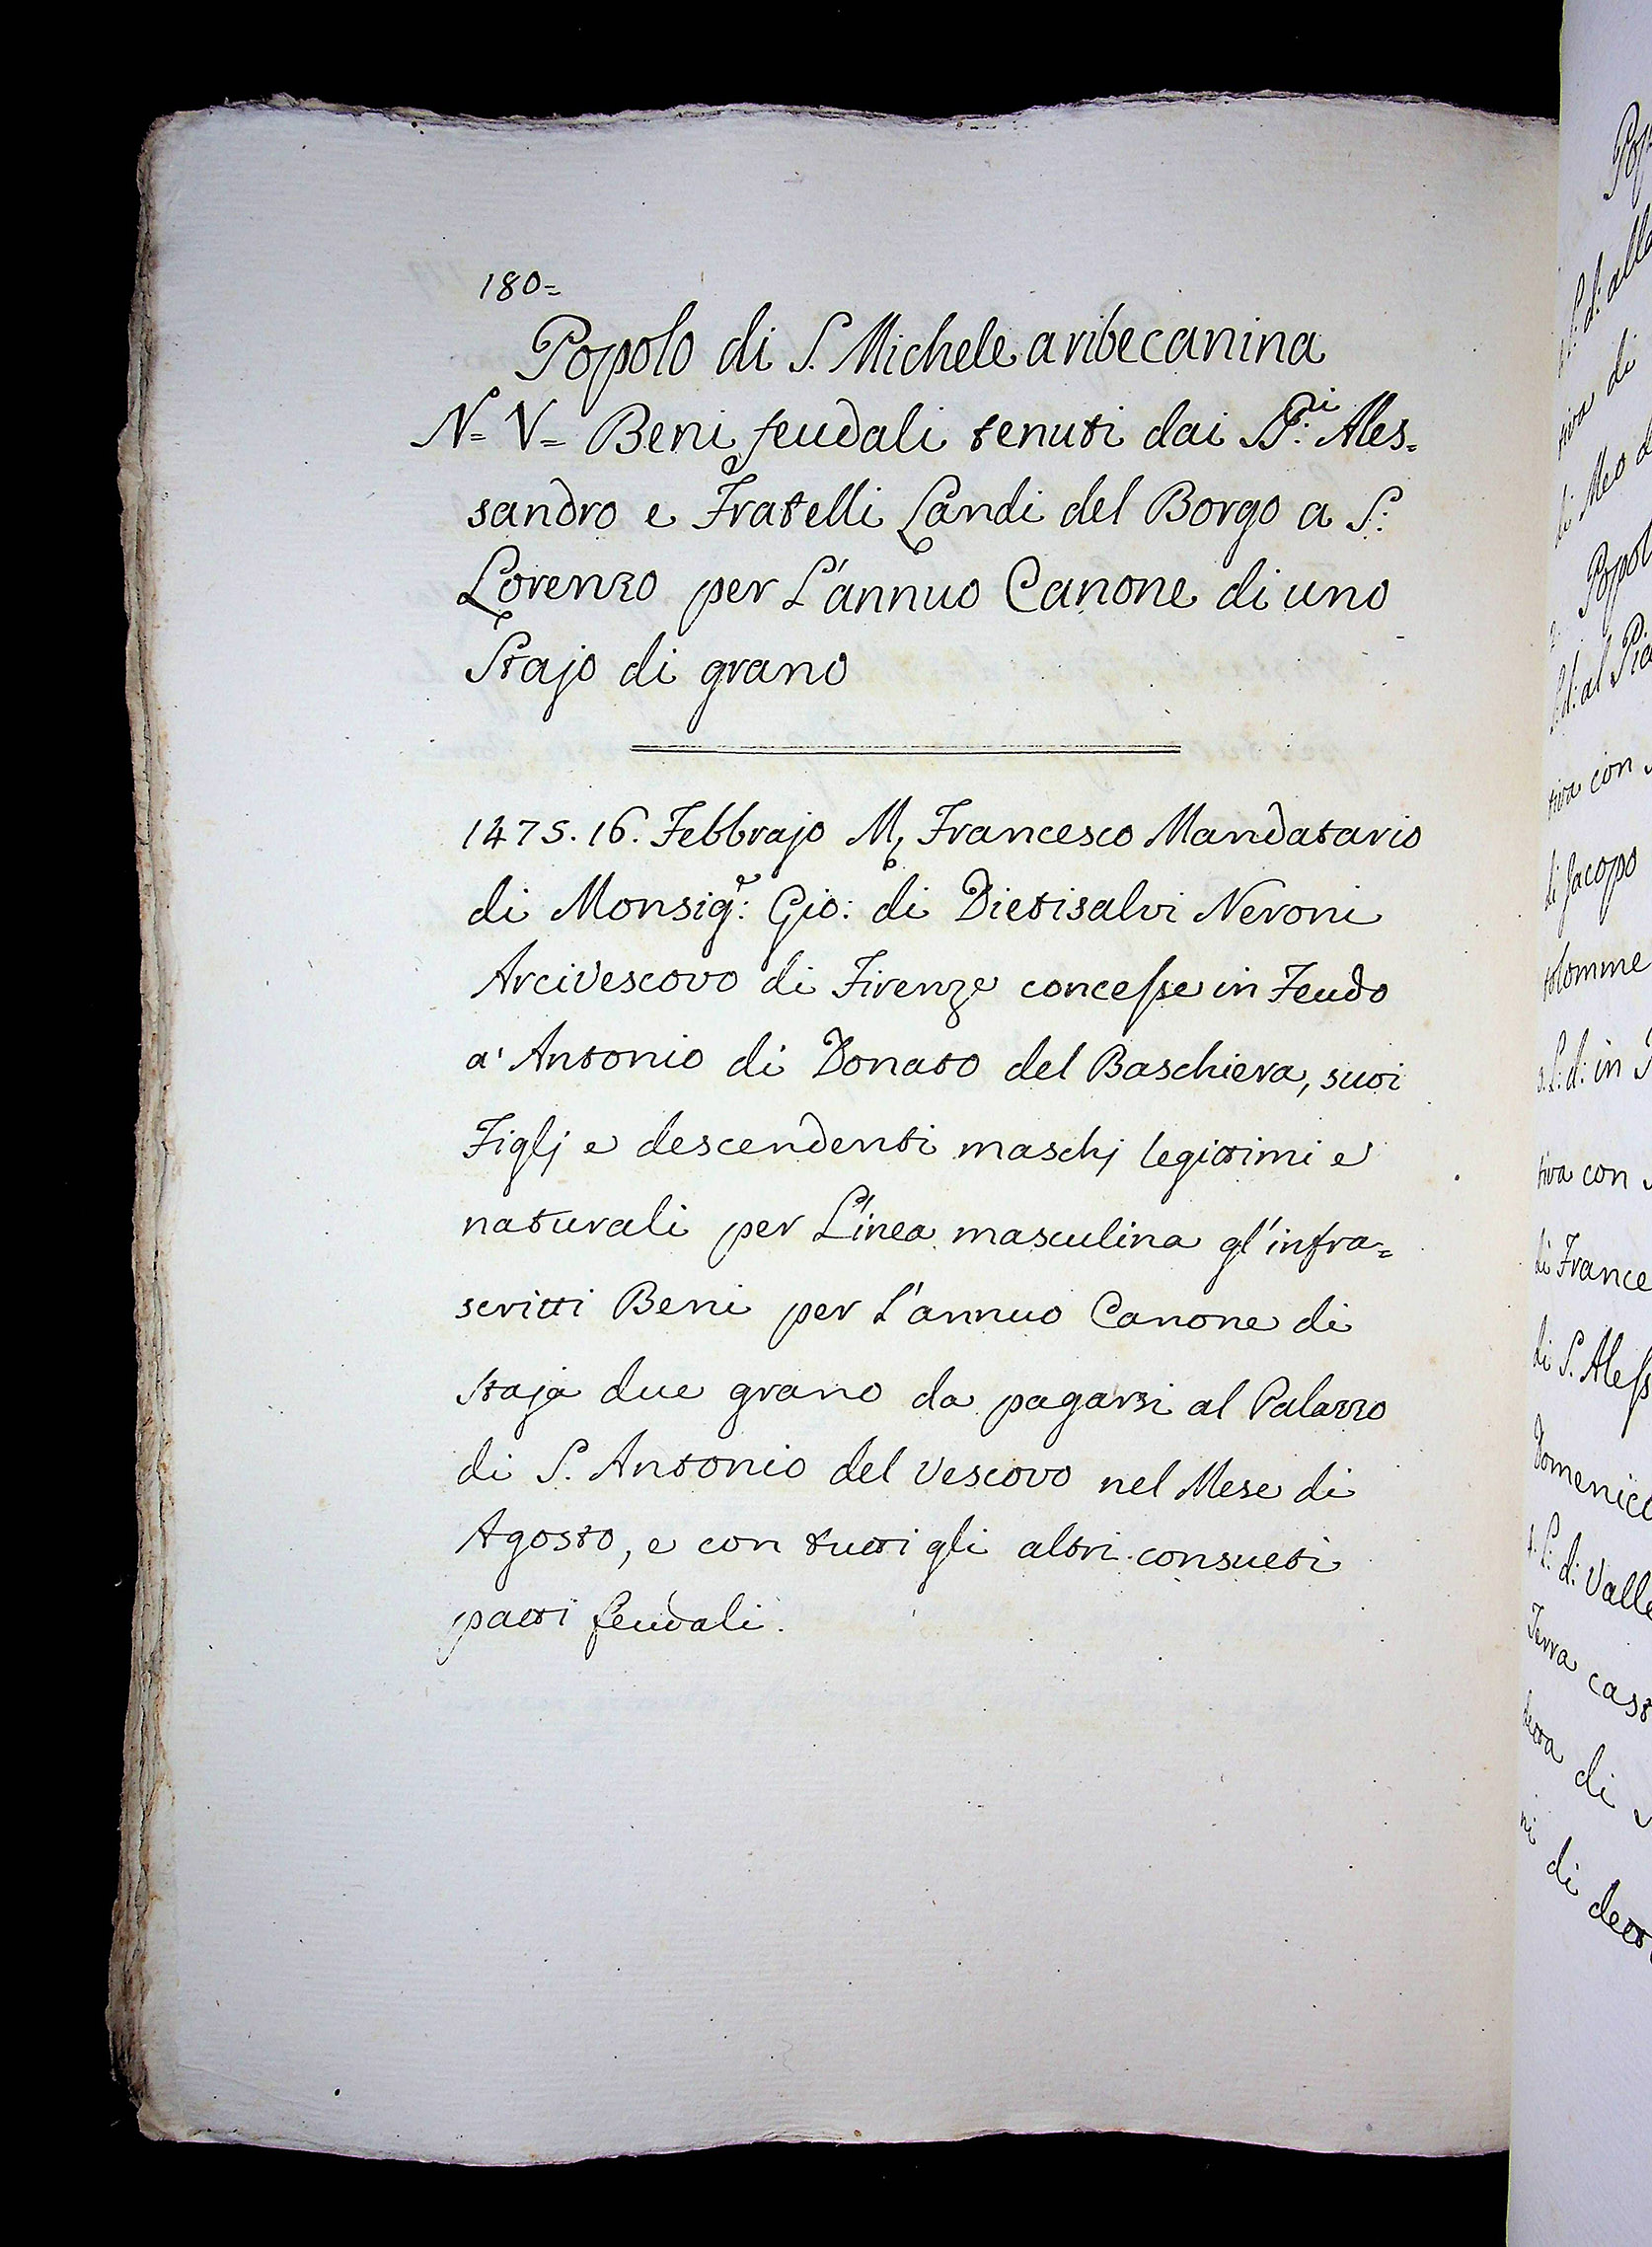 180=
Popolo di S. Michele a ribecanina
N= V= Beni feudali tenuti dai SS:ri Ales=
sandro e Fratelli Landi del Borgo a S:
Lorenzo per L'annuo Canone di uno
Stajo di grano
1475. 16. Febbrajo M, Francesco Mandatario
di Monsig:e Gio: di Dietisalvi Neroni
Arcivescovo di Firenze concesse in Feudo
a' Antonio di Donato del Baschiera, suoi
Figlj e descendenti maschj legittimi e
naturali per Linea masculina gl'infra=
scritti Beni per l'annuo Canone di
Staja due grano da pagarsi al Palazzo
di S. Antonio del Vescovo nel Mese di
Agosto, e con tutti gli altri consueti
patti feudali.
S: d: alla
tiva di
di Meo
S: d: al
tiva con
di Jacopo
tolomme
S: d: in
tiva con
di France
di S. Aless
Domenico
S: d: Valle
Terra cast
detta di
di dett